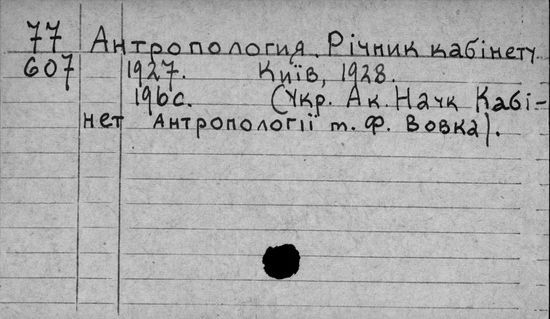 77 Антропология. Річник кабінету
607 1927. Київ, 1928.
196с. (Укр. Ак. Наук Кабі-
нет Антропології т. Ф. Вовка).